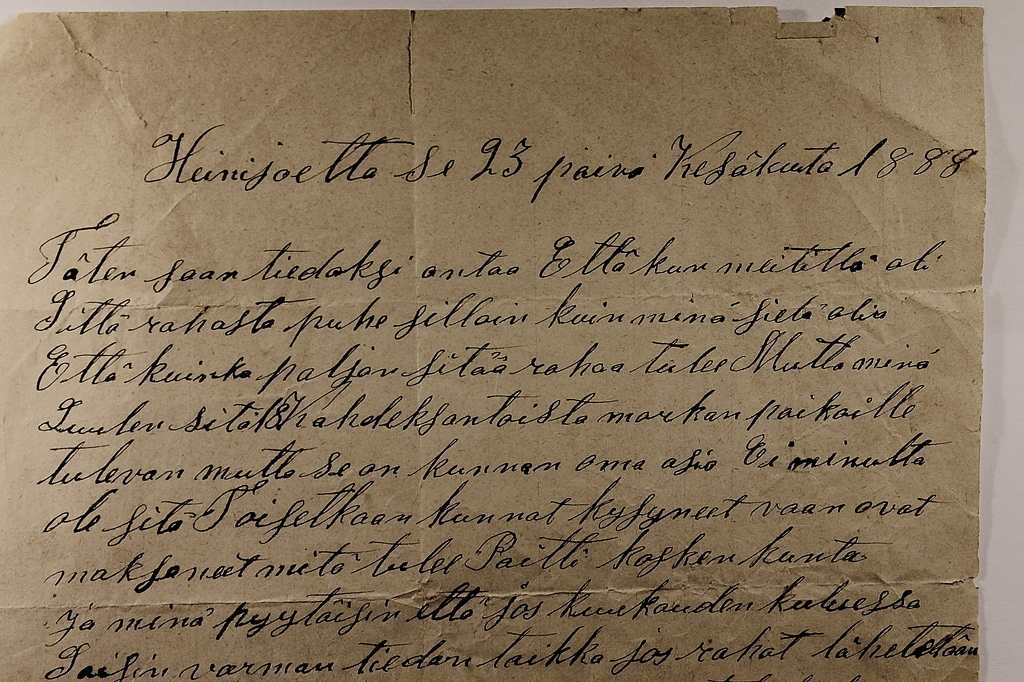 Heinijoelta se 23 päivä Kesäkuuta 1888
Täten saan tiedoksi antaa Että kun meitillä oli
Siittä rahasta puhe silloin kuin minä sielä olin
Että kuinka paljon sitää rahaa tulee Mutta minä
Luulen sitä 18 Kahdeksantoista markan paikoille
tulevan mutta se on kunnan oma asia Ei minulta
ole sitä Toisetkaan kunnat kysyneet vaan ovat
maksaneet mitä tulee Paitti kosken kunta
ja minä pyytäisin että jos kuukauden kuluessa
Saisin varman tiedon taikka jos rahat lähetetään